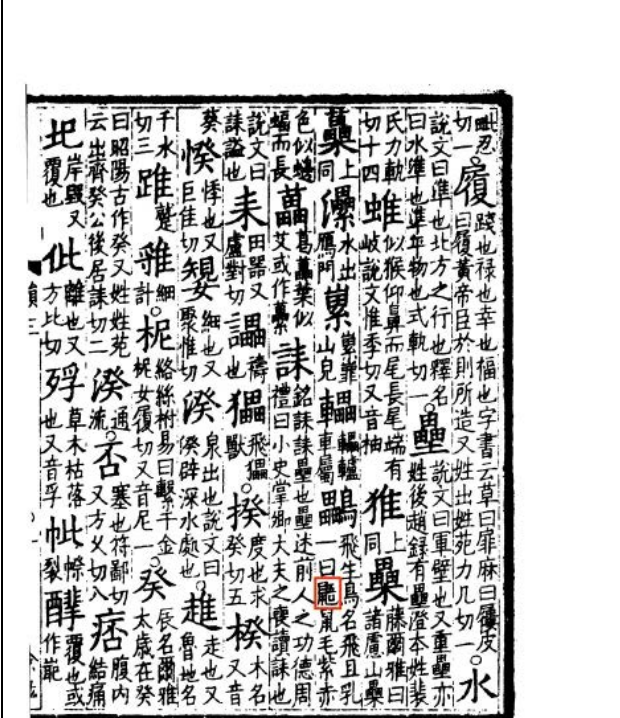 毗忍切一。履踐也禄也幸也福也字書云草曰屝麻曰屨皮曰履黃帝臣於則所造又姓出姓苑力几切一。水
說文曰準也北方之行也釋名曰水準也準平物也式軌切一。壘說文曰軍壁也又重壘亦姓後趙録有壘澄本姓裴
氏力軌切十四蜼似猴仰鼻而尾長尾端有岐說文惟季切又音柚猚上同櫐藤爾雅曰諸慮山櫐
上同灅水出鴈門山皃車屬轠轠轤鸓飛生鳥名飛且乳一曰鼠毛紫赤
色似蝙蝠而長藟葛藟葉似艾或作虆誄銘誄誄壘也壘述前人之功德周禮曰小史掌卿大夫之喪讀誄也
說文曰誄謚也耒田器又盧對切讄禱也飛獸。揆度也求癸切五楑木名又音
葵悸也又巨隹切嫢細也又聚惟切湀泉出也說文曰湀辟深水處也。趡走也又魯地名
千水切三踓蹵計細。柅絡絲柎易曰繫于金柅女履切又音尼一。癸辰名爾雅太歲在癸
曰昭陽古作癸又姓姓苑云出齊癸公後居誄切二湀通流。否塞也符鄙切又方久切八痞腹内結痛
圮岸毀又覆也仳離也又方比切殍草木枯落也又音孚幒裂覆也或作